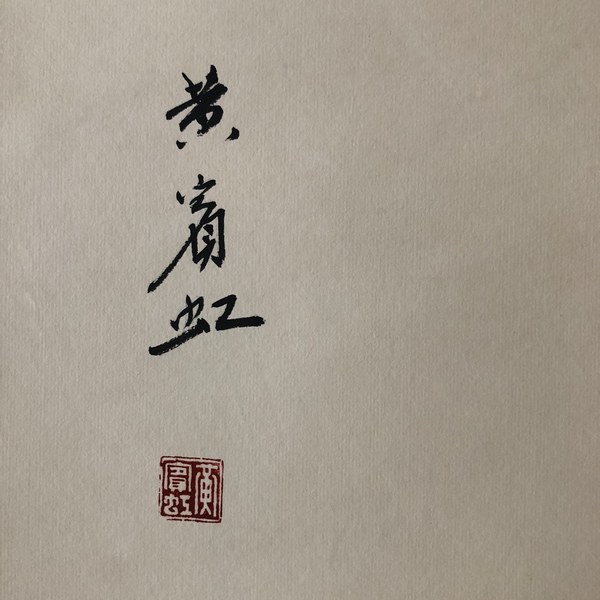 黄賓虹
黄賓虹